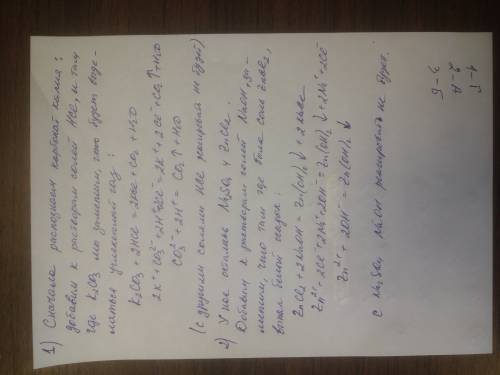 1) Сначала распознаем карбонат калия:
добавим к растворам солей HCl, и там
где K₂CO₃ мы заметим, что будет выде-
ляться углекислый газ:
K₂CO₃ + 2HCl = 2KCl + CO₂ + H₂O
2K⁺ + CO₃²⁻ + 2H⁺ + 2Cl⁻ = 2K⁺ + 2Cl⁻ + CO₂↑ + H₂O
CO₃²⁻ + 2H⁺ = CO₂↑ + H₂O
(с другими солями HCl реагировать не будет)
2) У нас остались Na₂SO₄ и ZnCl₂.
Добавим к растворам солей NaOH, за-
метим, что там где была соль ZnCl₂,
выпал белый осадок:
ZnCl₂ + 2NaOH = Zn(OH)₂↓ + 2NaCl
Zn²⁺ + 2Cl⁻ + 2Na⁺ + 2OH⁻ = Zn(OH)₂↓ + 2Na⁺ + 2Cl⁻
Zn²⁺ + 2OH⁻ = Zn(OH)₂↓
С Na₂SO₄ NaOH реагировать не будет.